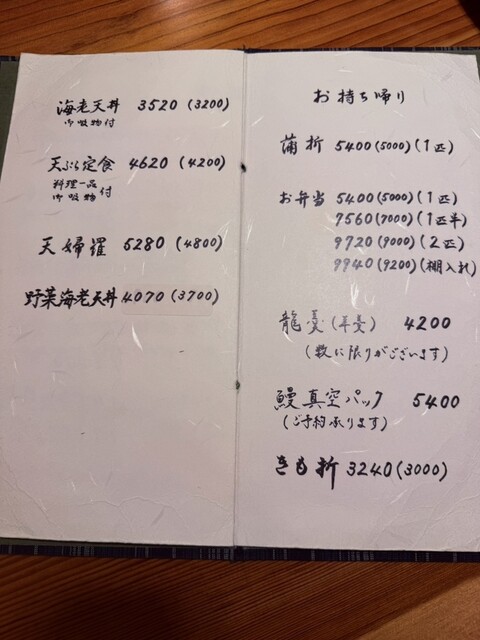 海老天丼 3520 (3200)
御吸物付
天ぷら定食 4620 (4200)
料理一品
御吸物 付
天婦羅 5280 (4800)
野菜海老天丼 4070 (3700)
お持ち帰り
蒲折 5400(5000)(1匹)
お弁当 5400(5000)(1匹)
7560(7000)(1匹半)
9720(9000)(2匹)
9940(9200)(棚入れ)
龍羹(羊羹) 4200
(数に限りがございます)
鰻真空パック 5400
(ご予約承ります)
きも折 3240(3000)